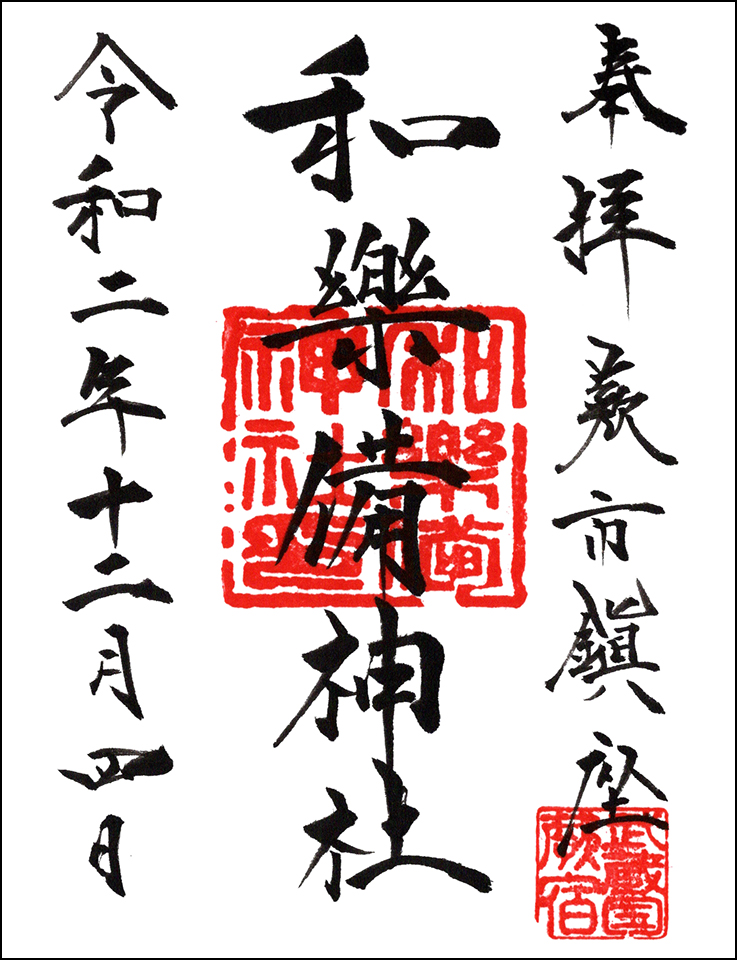 奉拝 蕨市鎮座
武蔵国蕨宿
和樂備神社
和樂備神社印
令和二年十二月四日